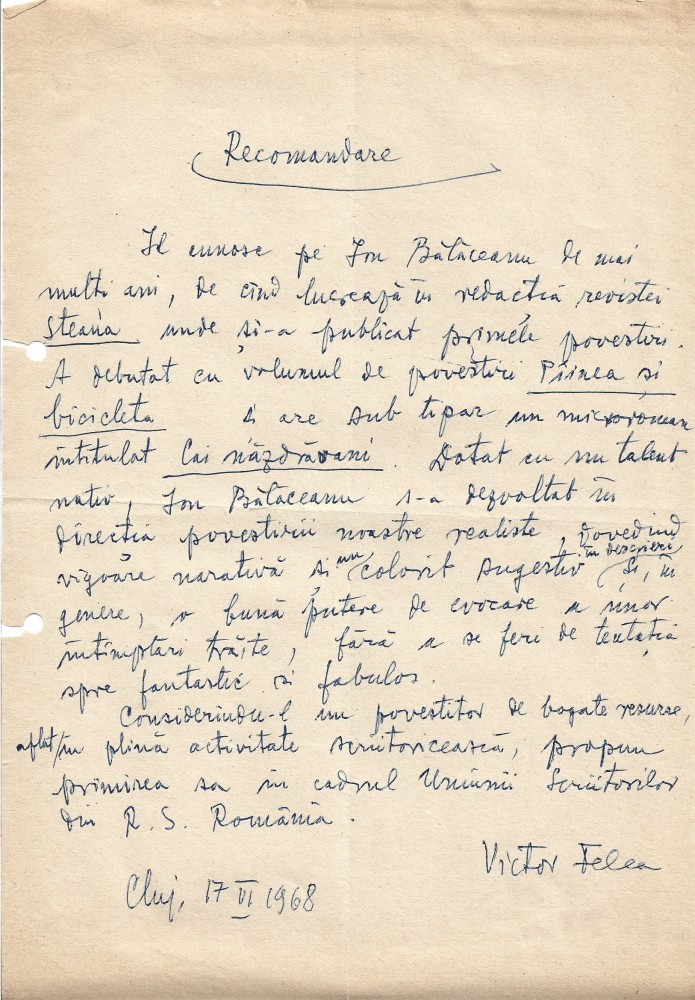 Recomandare
Îl cunosc pe Ion Bălăceanu de mai
mulți ani, de cînd lucrează în redacția revistei
Steaua unde și-a publicat primele povestiri.
A debutat cu volumul de povestiri Pîinea și
bicicleta și are sub tipar un microroman
intitulat Cai năzdrăvani. Dotat cu un talent
nativ, Ion Bălăceanu s-a dezvoltat în
direcția povestirii noastre realiste, dovedind
vigoare narativă și un colorit sugestiv în descrieri și, în
genere, o bună putere de evocare a unor
întîmplări trăite, fără a se feri de tentația
spre fantastic și fabulos.
Considerîndu-l un povestitor de bogate resurse,
aflat în plină activitate scriitoricească, propun
primirea sa în cadrul Uniunii Scriitorilor
din R. S. România.
Victor Felea
Cluj, 17 VI 1968